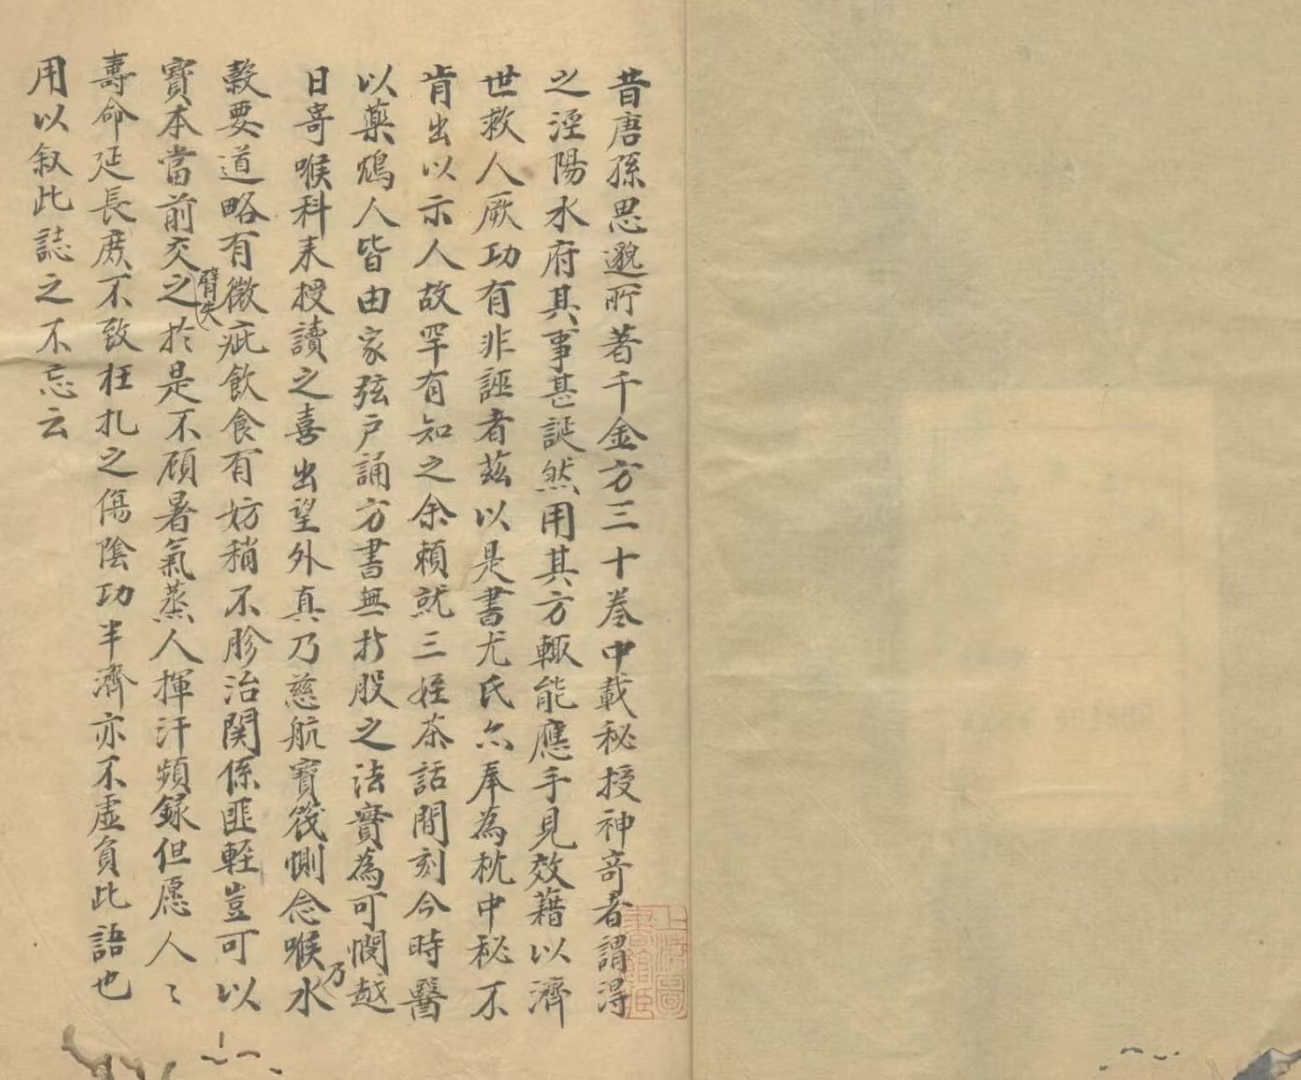 昔唐孫思邈所著千金方三十卷中載秘授神奇者謂得
之涇陽水府其事甚誕然用其方輙能應手見效藉以濟
世救人厥功有非誣者茲以是書尤氏亦奉為枕中秘不
肯出以示人故罕有知之余賴就三姪茶話間刻今時醫
以藥鴆人皆由家弦户誦方書無折股之法實為可憫越
日寄喉科来授讀之喜出望外真乃慈航寳筏惻念喉乃水
穀要道略有微疵飲食有妨稍不胗治関係匪輊豈可以
寳本當前交臂失之於是不顧暑氣蒸人揮汗頻錄但愿人〻
壽命延長庶不致枉扎之傷陰功半濟亦不虚負此語也
用以叙此誌之不忘云
上海圖書館藏